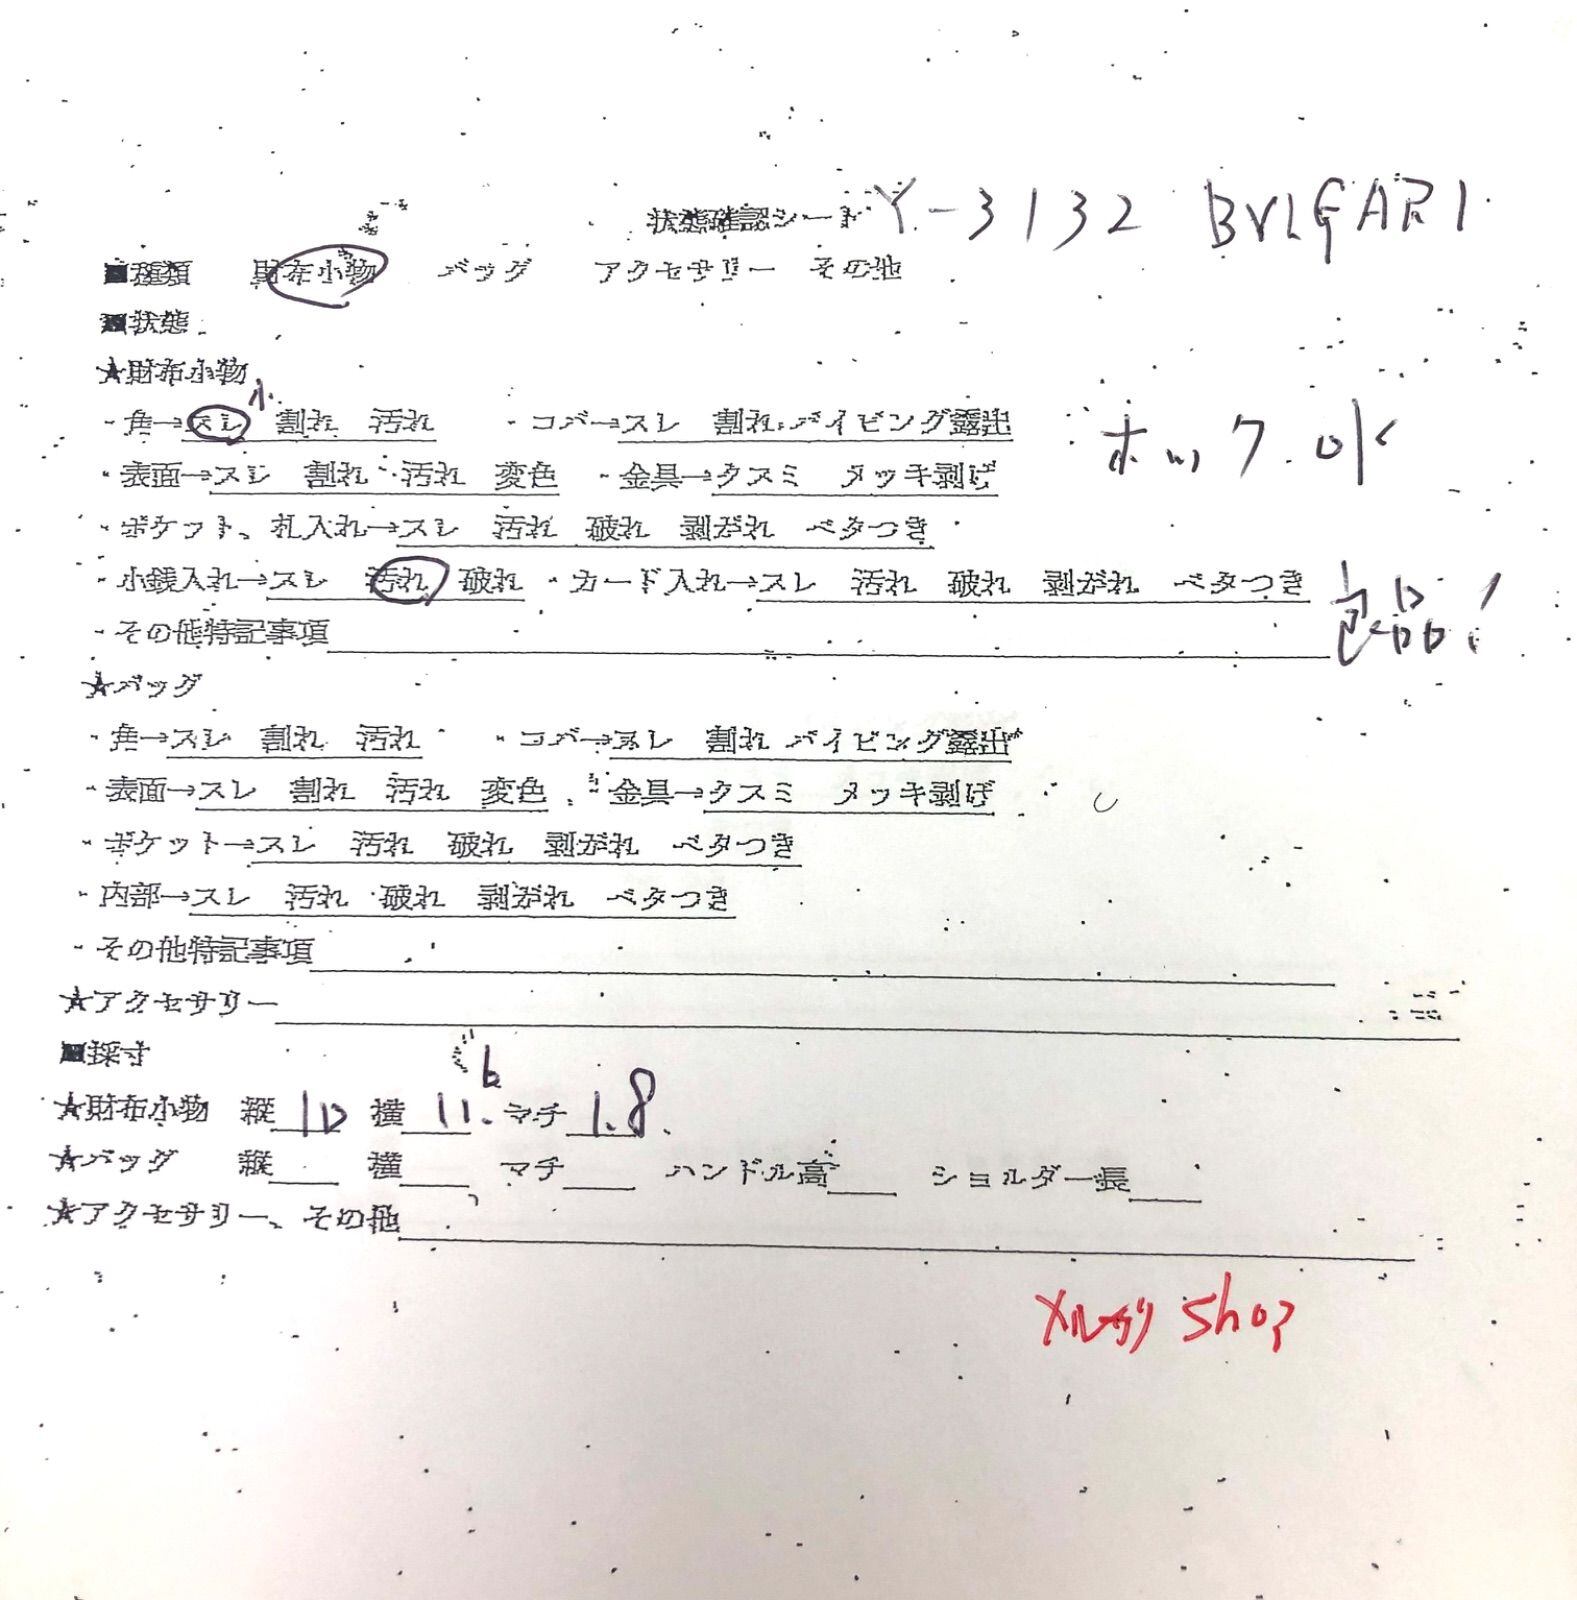 状態確認シート Y-3132 BVLGARI
■種類 財布小物 バッグ アクセサリー その他
■状態
★財布小物
・角→スレ 小 割れ 汚れ ・コバ→スレ 割れ パイピング露出
ホック.OK
・表面→スレ 割れ 汚れ 変色 ・金具→クスミ メッキ剥げ
・ポケット、札入れ→スレ 汚れ 破れ 剥がれ ベタつき
・小銭入れ→スレ 汚れ 破れ ・カード入れ→スレ 汚れ 破れ 剥がれ ベタつき
良品!
・その他特記事項
★バッグ
・角→スレ 割れ 汚れ ・コバ→スレ 割れ パイピング露出
・表面→スレ 割れ 汚れ 変色 ・金具→クスミ メッキ剥げ
・ポケット→スレ 汚れ 破れ 剥がれ ベタつき
・内部→スレ 汚れ 破れ 剥がれ ベタつき
・その他特記事項
★アクセサリー
■採寸
★財布小物 縦 10 横 11.6 マチ 1.8
★バッグ 縦 横 マチ ハンドル高 ショルダー長
★アクセサリー、その他
メルカリ Shop